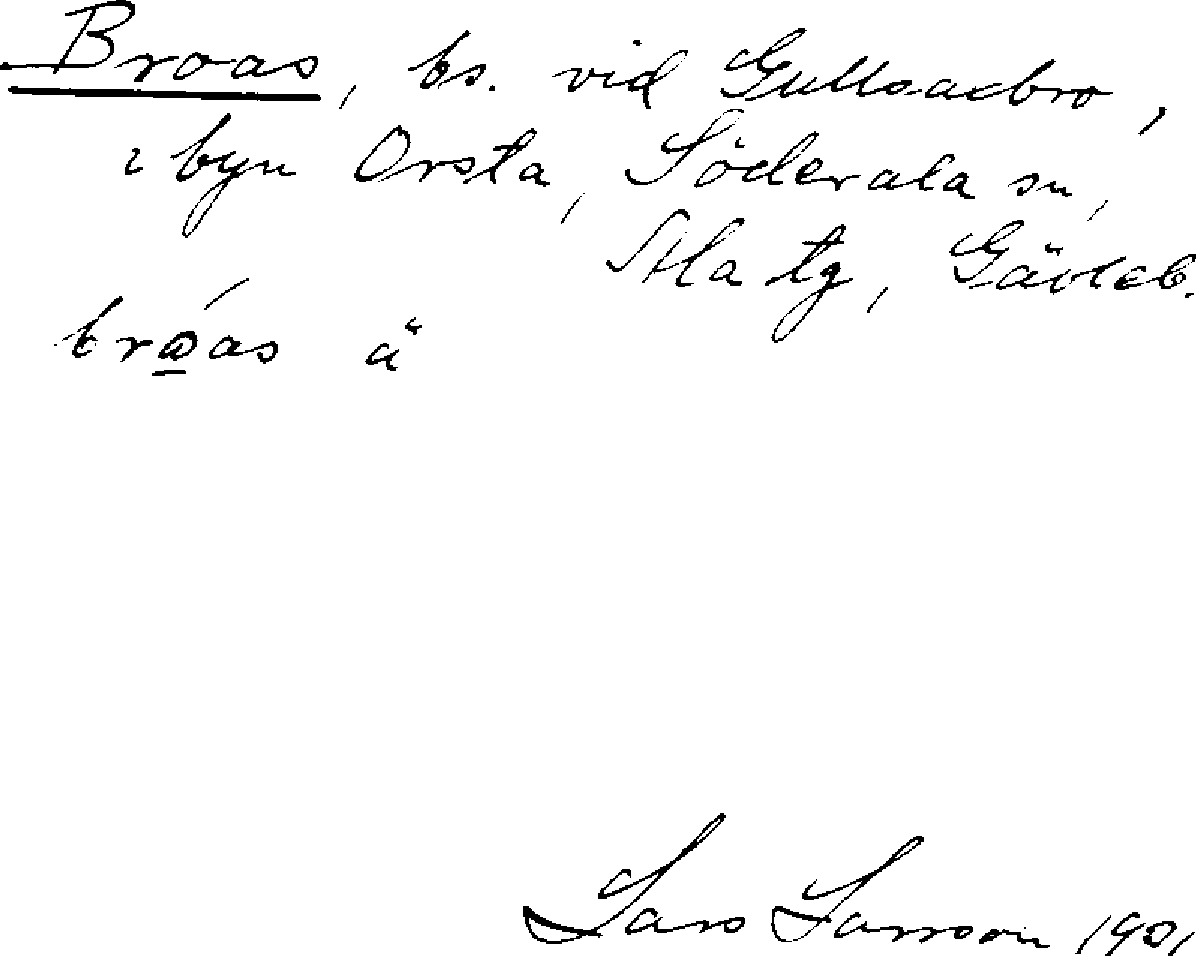 Broas, bs. vid Gullsacbro,
i byn Orsta, Söderala sn,
Ala tg, Gävleb.
broas ä
Lars Larsson 1901